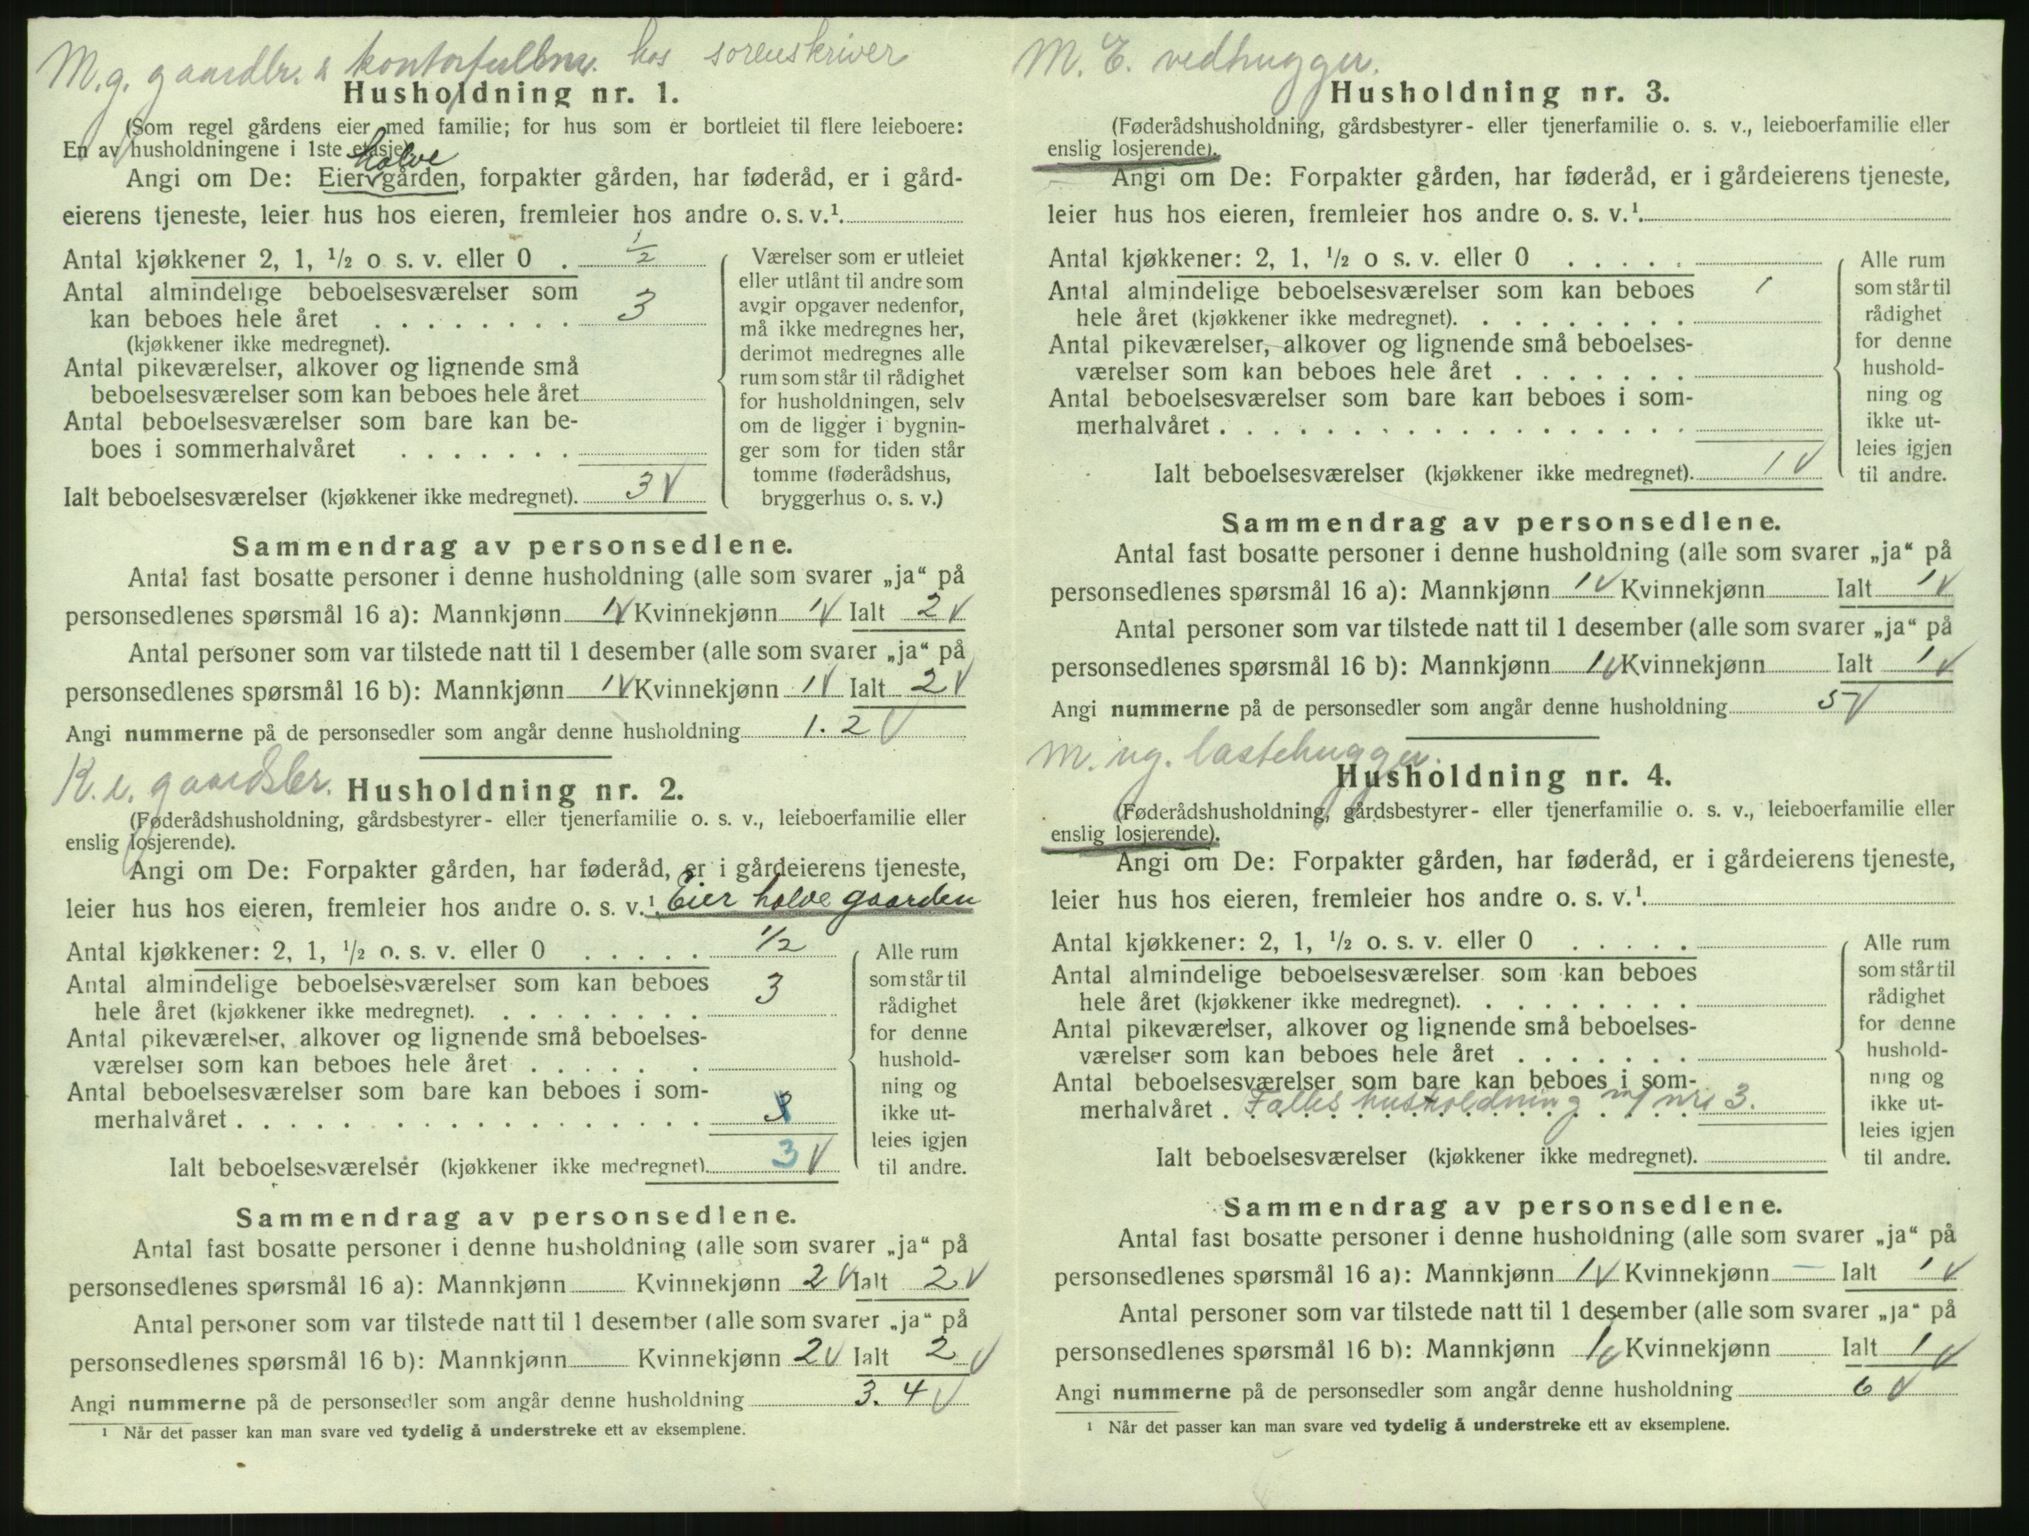 M. g. gaardbr. & kontorfullm. hos sorenskriver
Husholdning nr. 1.
(Som regel gårdens eier med familie; for hus som er bortleiet til flere leieboere:
En av husholdningene i 1ste etasje).
halve
Angi om De: Eier gården, forpakter gården, har føderåd, er i gård-
eierens tjeneste, leier hus hos eieren, fremleier hos andre o. s. v.¹
Antal kjøkkener 2, 1, ½ o s. v. eller 0 . ½
Antal almindelige beboelsesværelser som
kan beboes hele året . . . . . . . . 3
(kjøkkener ikke medregnet).
Antal pikeværelser, alkover og lignende små
beboelsesværelser som kan beboes hele året
Antal beboelsesværelser som bare kan be-
boes i sommerhalvåret . . . . . . .
Ialt beboelsesværelser (kjøkkener ikke medregnet). 3 √
Værelser som er utleiet
eller utlånt til andre som
avgir opgaver nedenfor,
må ikke medregnes her,
derimot medregnes alle
rum som står til rådighet
for husholdningen, selv
om de ligger i bygnin-
ger som for tiden står
tomme (føderådshus,
bryggerhus o. s. v.)
Sammendrag av personsedlene.
Antal fast bosatte personer i denne husholdning (alle som svarer „ja“ på
personsedlenes spørsmål 16 a): Mannkjønn 1√ Kvinnekjønn 1√ Ialt 2√
Antal personer som var tilstede natt til 1 desember (alle som svarer „ja“ på
personsedlenes spørsmål 16 b): Mannkjønn 1√ Kvinnekjønn 1√ Ialt 2√
Angi nummerne på de personsedler som angår denne husholdning 1. 2 √
K. e. gaardsbr.
Husholdning nr. 2.
(Føderådshusholdning, gårdsbestyrer- eller tjenerfamilie o. s. v., leieboerfamilie eller
enslig losjerende).
Angi om De: Forpakter gården, har føderåd, er i gårdeierens tjeneste,
leier hus hos eieren, fremleier hos andre o. s. v.¹ Eier halve gaarden
Antal kjøkkener: 2, 1, ½ o. s. v. eller 0 . . . . . ½
Antal almindelige beboelsesværelser som kan beboes
hele året (kjøkkener ikke medregnet). . . . . . . . . 3
Antal pikeværelser, alkover og lignende små beboelses-
værelser som kan beboes hele året . . . . . .
Antal beboelsesværelser som bare kan beboes i som-
merhalvåret . . . . . . . . . . . . . . . . . .
Ialt beboelsesværelser (kjøkkener ikke medregnet). 3 √
Alle rum
som står til
rådighet
for denne
hushold-
ning og
ikke ut-
leies igjen
til andre.
Sammendrag av personsedlene.
Antal fast bosatte personer i denne husholdning (alle som svarer „ja“ på
personsedlenes spørsmål 16 a): Mannkjønn Kvinnekjønn 2√ Ialt 2√
Antal personer som var tilstede natt til 1 desember (alle som svarer „ja“ på
personsedlenes spørsmål 16 b): Mannkjønn Kvinnekjønn 2√ Ialt 2√
Angi nummerne på de personsedler som angår denne husholdning 3. 4 √
¹ Når det passer kan man svare ved tydelig å understreke ett av eksemplene.
M. E. vedhugger.
Husholdning nr. 3.
(Føderådshusholdning, gårdsbestyrer- eller tjenerfamilie o. s. v., leieboerfamilie eller
enslig losjerende).
Angi om De: Forpakter gården, har føderåd, er i gårdeierens tjeneste,
leier hus hos eieren, fremleier hos andre o. s. v.¹
Antal kjøkkener: 2, 1, ½ o s. v. eller 0 . . . . .
Antal almindelige beboelsesværelser som kan beboes 1
hele året (kjøkkener ikke medregnet). . . . . . . . .
Antal pikeværelser, alkover og lignende små beboelses-
værelser som kan beboes hele året . . . . . . .
Antal beboelsesværelser som bare kan beboes i som-
merhalvåret . . . . . . . . . . . . . . . . . .
Ialt beboelsesværelser (kjøkkener ikke medregnet). 1 √
Alle rum
som står til
rådighet
for denne
hushold-
ning og
ikke ut-
leies igjen
til andre.
Sammendrag av personsedlene.
Antal fast bosatte personer i denne husholdning (alle som svarer „ja“ på
personsedlenes spørsmål 16 a): Mannkjønn 1√ Kvinnekjønn Ialt 1√
Antal personer som var tilstede natt til 1 desember (alle som svarer „ja“ på
personsedlenes spørsmål 16 b): Mannkjønn 1√ Kvinnekjønn Ialt 1√
Angi nummerne på de personsedler som angår denne husholdning 5√
M. ug. lastehugger.
Husholdning nr. 4.
(Føderådshusholdning, gårdsbestyrer- eller tjenerfamilie o. s. v., leieboerfamilie eller
enslig losjerende).
Angi om De: Forpakter gården, har føderåd, er i gårdeierens tjeneste,
leier hus hos eieren, fremleier hos andre o. s. v.¹
Antal kjøkkener: 2, 1, ½ o. s. v. eller 0 . . . . .
Antal almindelige beboelsesværelser som kan beboes
hele året (kjøkkener ikke medregnet). . . . . . . . .
Antal pikeværelser, alkover og lignende små beboelses-
værelser som kan beboes hele året . . . . . . .
Antal beboelsesværelser som bare kan beboes i som-
merhalvåret . Fælles husholdning m/ nr. 3.
Ialt beboelsesværelser (kjøkkener ikke medregnet).
Alle rum
som står til
rådighet
for denne
hushold-
ning og
ikke ut-
leies igjen
til andre.
Sammendrag av personsedlene.
Antal fast bosatte personer i denne husholdning (alle som svarer „ja“ på
personsedlenes spørsmål 16 a): Mannkjønn 1√ Kvinnekjønn — Ialt 1√
Antal personer som var tilstede natt til 1 desember (alle som svarer „ja“ på
personsedlenes spørsmål 16 b): Mannkjønn 1√ Kvinnekjønn Ialt 1√
Angi nummerne på de personsedler som angår denne husholdning 6 √
¹ Når det passer kan man svare ved tydelig å understreke ett av eksemplene.